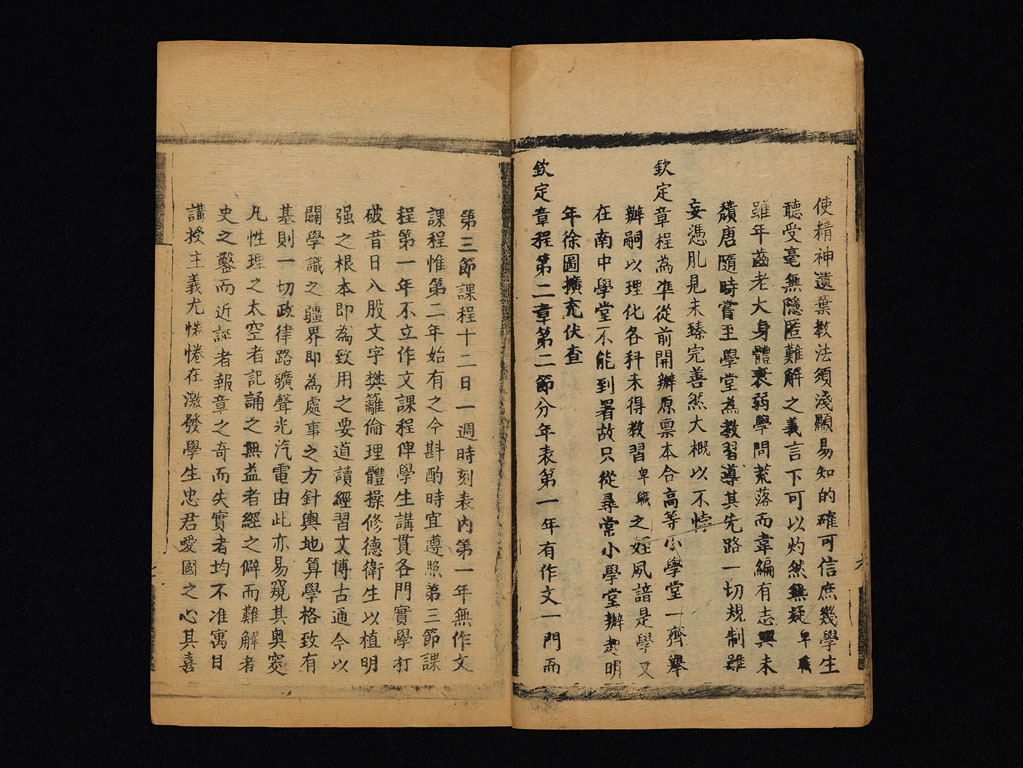 使精神遺棄教法須淺顯易知的確可信庶幾學生
聽受毫無隱匿難解之義言下可以灼然無疑卑職
雖年齒老大身體衰弱學問荒落而韋編有志興未
穨唐隨時嘗至學堂為教習導其先路一切規制雖
妄憑肊見未臻完善然大概以不悖
欽定章程為准從前開辦原稟本合高等小學堂一齊舉
辦嗣以理化各科未得教習卑職之姪夙諳是學又
在南中學堂不能到署故只從尋常小學堂辦起明
年徐圖擴充伏查
欽定章程第二章第二節分年表第一年有作文一門而
第三節課程十二日一週時刻表內第一年無作文
課程惟第二年始有之今斟酌時宜遵照第三節課
程第一年不立作文課程俾學生講貫各門實學打
破昔日八股文字樊籬倫理體操修德衛生以植明
强之根本即為致用之要道讀經習文博古通今以
闢學識之疆界即為處事之方針輿地算學格致有
基則一切政律路礦聲光汽電由此亦易窺其奧窔
凡性理之太空者記誦之無益者經之僻而難解者
史之鑿而近誣者報章之奇而失實者均不准寓目
講授主義尤惓惓在激發學生忠君愛國之心其喜